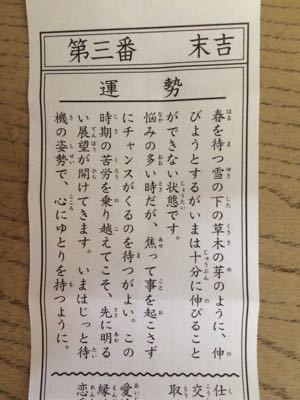 第三番　末吉
運勢
春を待つ雪の下の草木の芽のように、伸
びようとするがいまは十分に伸びること
ができない状態です。
悩みの多い時だが、焦って事を起こさず
にチャンスがくるのを待つがよい。この
時期の苦労を乗り越えてこそ、先に明る
い展望が開けてきます。いまはじっと待
機の姿勢で、心にゆとりを持つように。